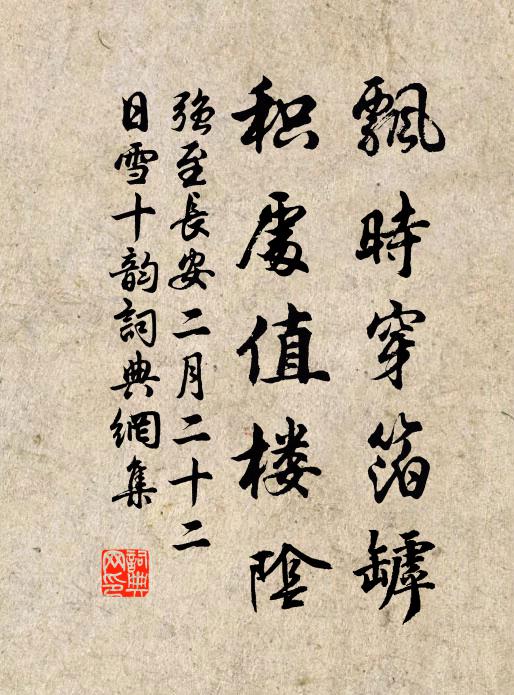 飄時穿箔罅
积處值楼陰
强至長安二月二十二
日雪十韵詞典網集
詞典网印